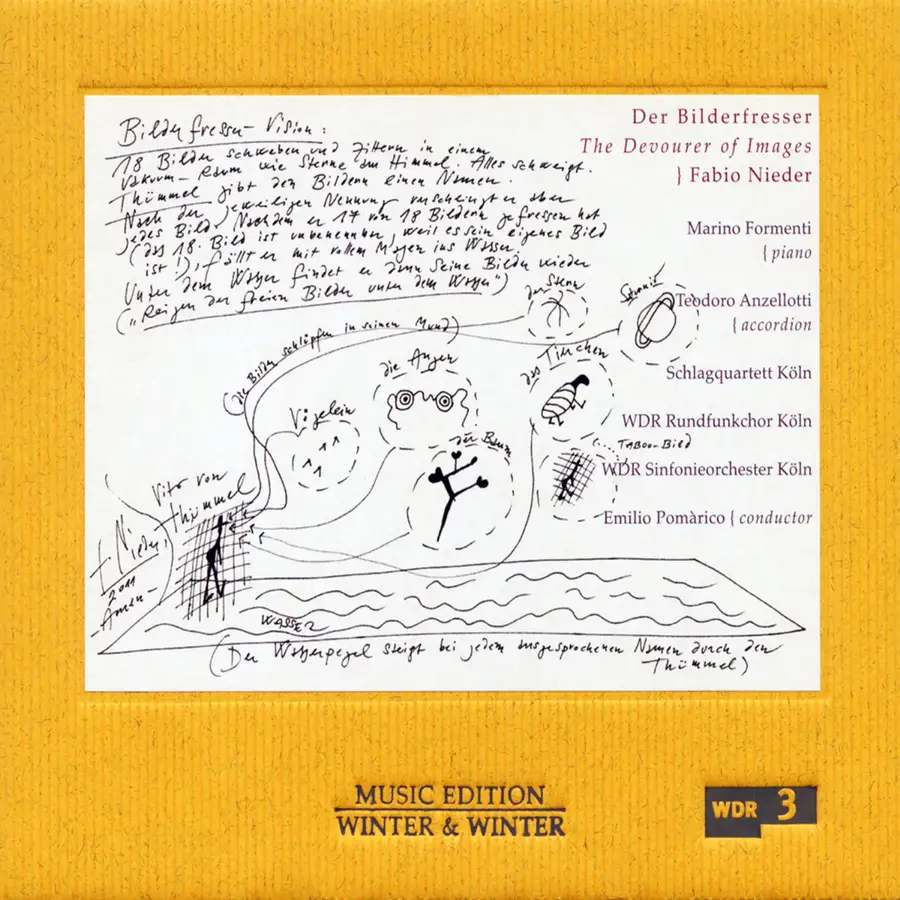 Bilderfresser-Vision:
18 Bilder schweben und zittern in einem
Vakuum-Raum wie Sterne am Himmel. Alles schweigt.
Thümmel gibt den Bildern einen Namen.
Nach der jeweiligen Nennung verschlingt er aber
jedes Bild. Nachdem er 17 von 18 Bildern gefressen hat
(das 18. Bild ist unbenennbar, weil es sein eigenes Bild
ist!), fällt er mit vollem Magen ins Wasser.
Unter dem Wasser findet er dann seine Bilder wieder
("Reigen der freien Bilder unter dem Wasser")
Der Bilderfresser
The Devourer of Images
} Fabio Nieder
Marino Formenti
{ piano
Teodoro Anzellotti
{ accordion
Schlagquartett Köln
WDR Rundfunkchor Köln
WDR Sinfonieorchester Köln
Emilio Pomàrico { conductor
der Stern
Saturn
(die Bilder schlüpfen in seinen Mund)
die Augen
das Tierchen
Vögelein
der Baum
Taboo-Bild
Vito von
Thümmel
Nieder,
2011
-Amen-
WASSER
(Der Wasserpegel steigt bei jedem ausgesprochenen Namen durch den
Thümmel)
MUSIC EDITION
WINTER & WINTER
WDR 3